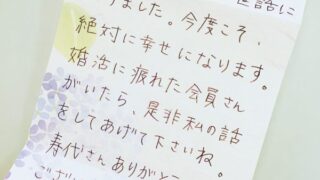 世話に
りました。今度こそ、
絶対に幸せになります。
婚活に疲れた会員さん
がいたら、是非私の話
をしてあげて下さいね。
寿代さんありがとう
ござい